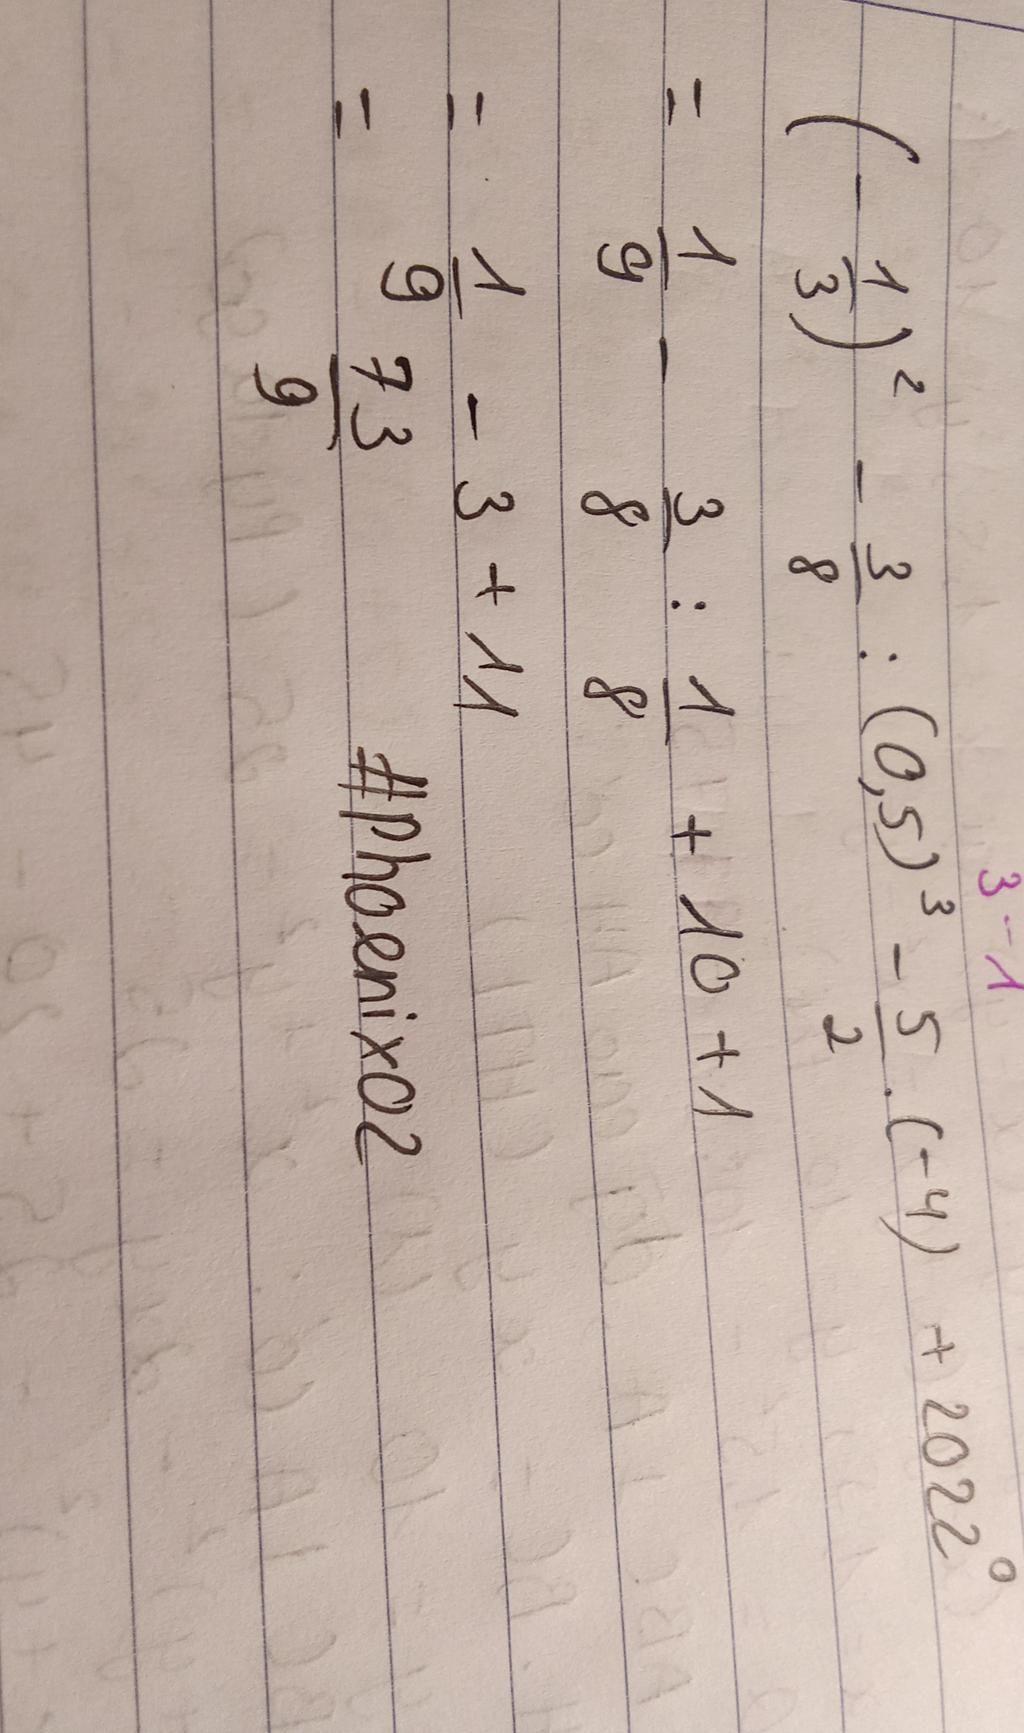 3-1
(-1/3)² - 3/8 : (0,5)³ - 5/2 . (-4) + 2022⁰
= 1/9 - 3/8 : 1/8 + 10 + 1
= 1/9 - 3 + 11
= 73/9 #Phoenix02